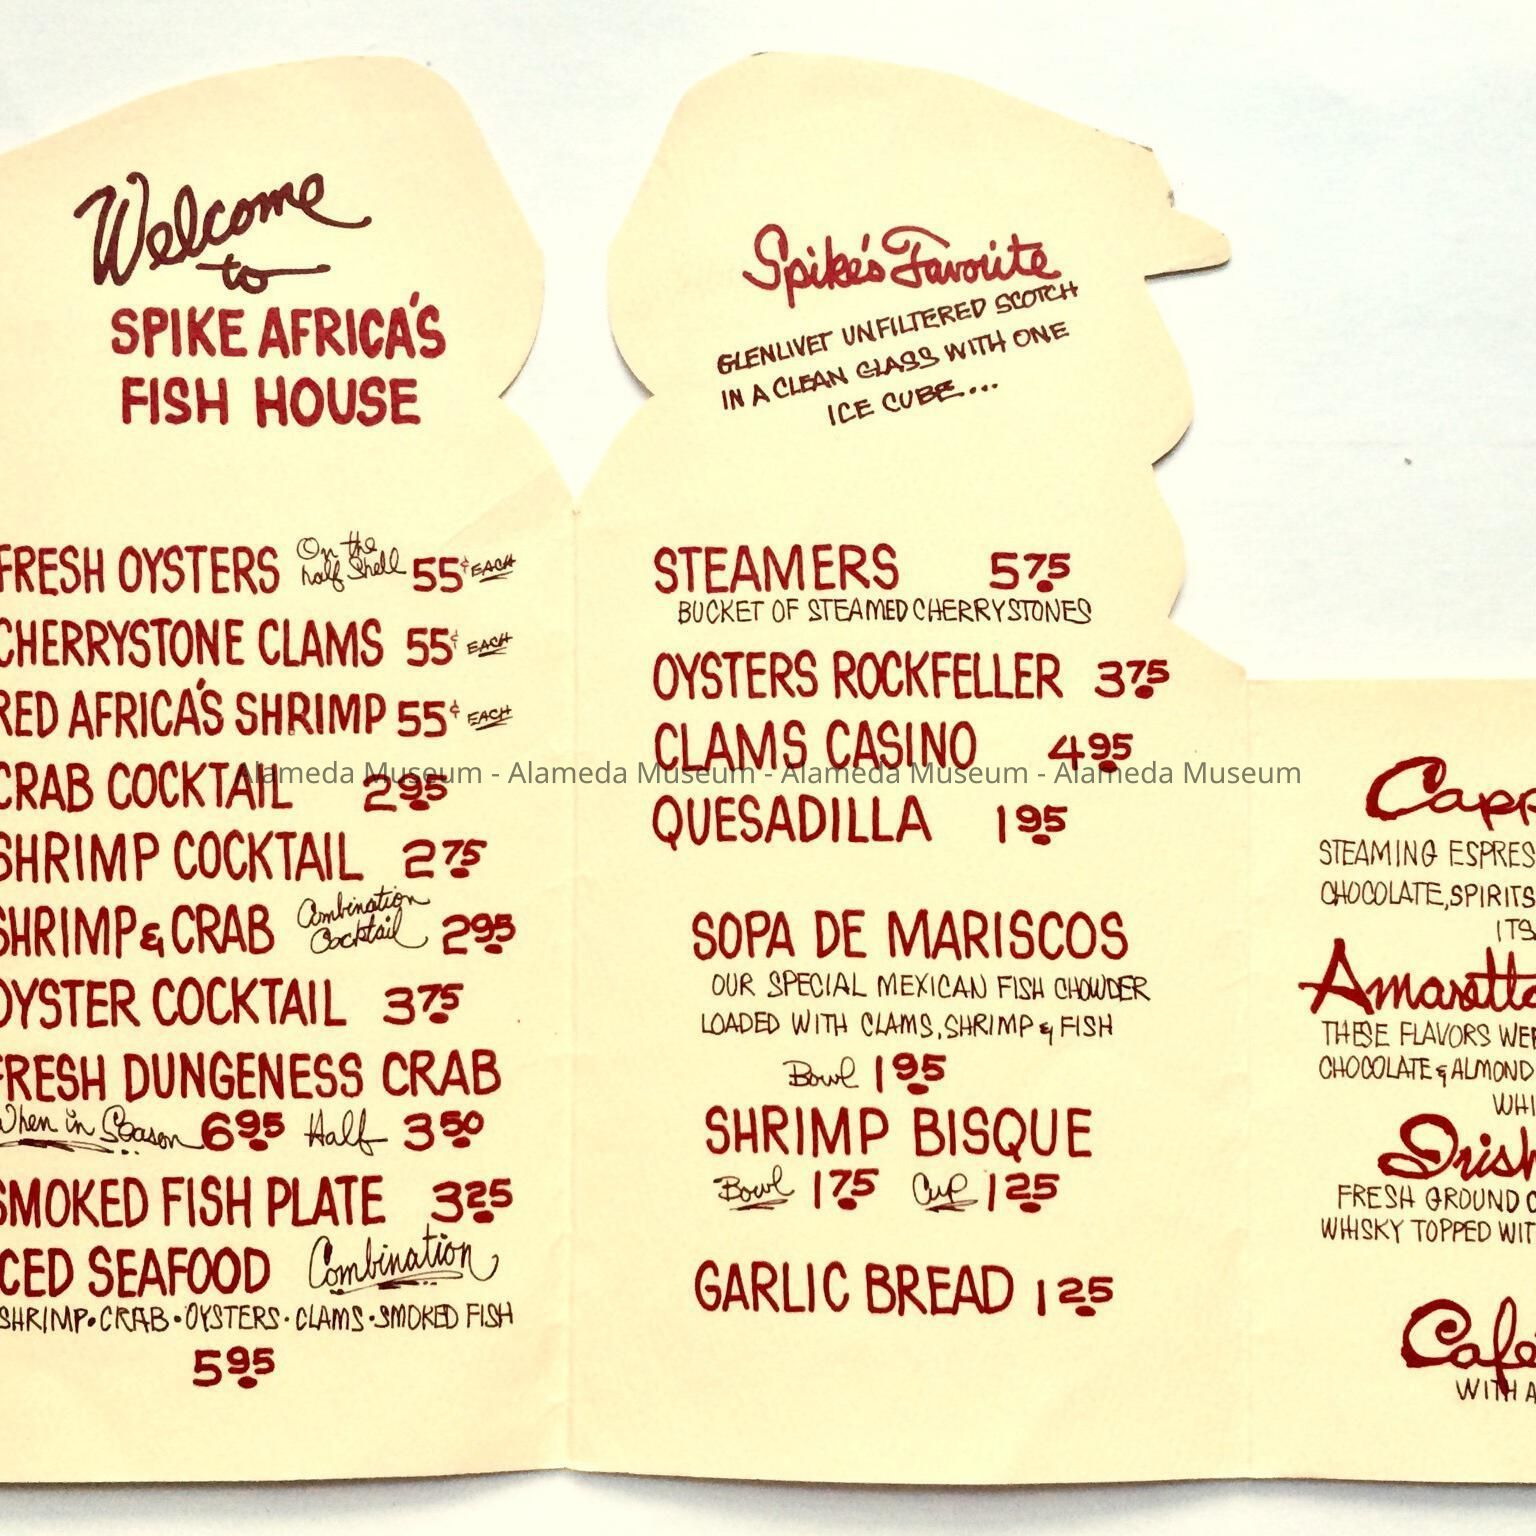 Welcome
to
SPIKE AFRICA'S
FISH HOUSE
FRESH OYSTERS On the half Shell 55¢ EACH
CHERRYSTONE CLAMS 55¢ EACH
RED AFRICA'S SHRIMP 55¢ EACH
CRAB COCKTAIL 2.95
SHRIMP COCKTAIL 2.75
SHRIMP & CRAB Combination Cocktail 2.95
OYSTER COCKTAIL 3.75
FRESH DUNGENESS CRAB
When in Season 6.95 Half 3.50
SMOKED FISH PLATE 3.25
ICED SEAFOOD Combination
SHRIMP • CRAB • OYSTERS • CLAMS • SMOKED FISH
5.95
Spike's Favorite
GLENLIVET UNFILTERED SCOTCH
IN A CLEAN GLASS WITH ONE
ICE CUBE...
STEAMERS 5.75
BUCKET OF STEAMED CHERRYSTONES
OYSTERS ROCKFELLER 3.75
CLAMS CASINO 4.95
QUESADILLA 1.95
SOPA DE MARISCOS
OUR SPECIAL MEXICAN FISH CHOWDER
LOADED WITH CLAMS, SHRIMP & FISH
Bowl 1.95
SHRIMP BISQUE
Bowl 1.75 Cup 1.25
GARLIC BREAD 1.25
Capp
STEAMING ESPRES
CHOCOLATE, SPIRITS
ITS
Amaretto
THESE FLAVORS WER
CHOCOLATE & ALMOND
WHI
Irish
FRESH GROUND C
WHISKY TOPPED WIT
Café
WITH A
Alameda Museum - Alameda Museum - Alameda Museum - Alameda Museum